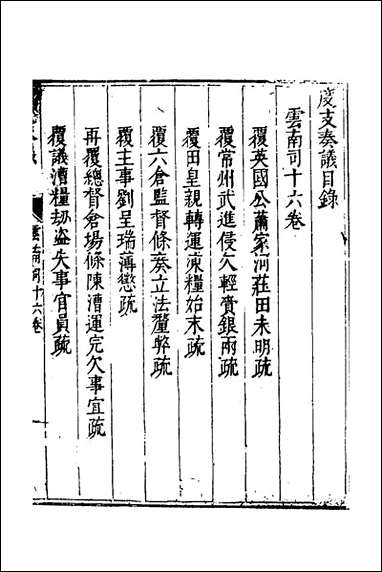 度支奏議目錄
雲南司十六卷
覆英國公蕭家河莊田未明疏
覆常州武進侵欠輕賫銀兩疏
覆田皇親轉運凍糧始末疏
覆六倉監督條奏立法釐弊疏
覆主事劉呈瑞薄懲疏
再覆總督倉場條陳漕運完欠事宜疏
覆議漕糧劫盗失事官員疏
雲南司十六卷